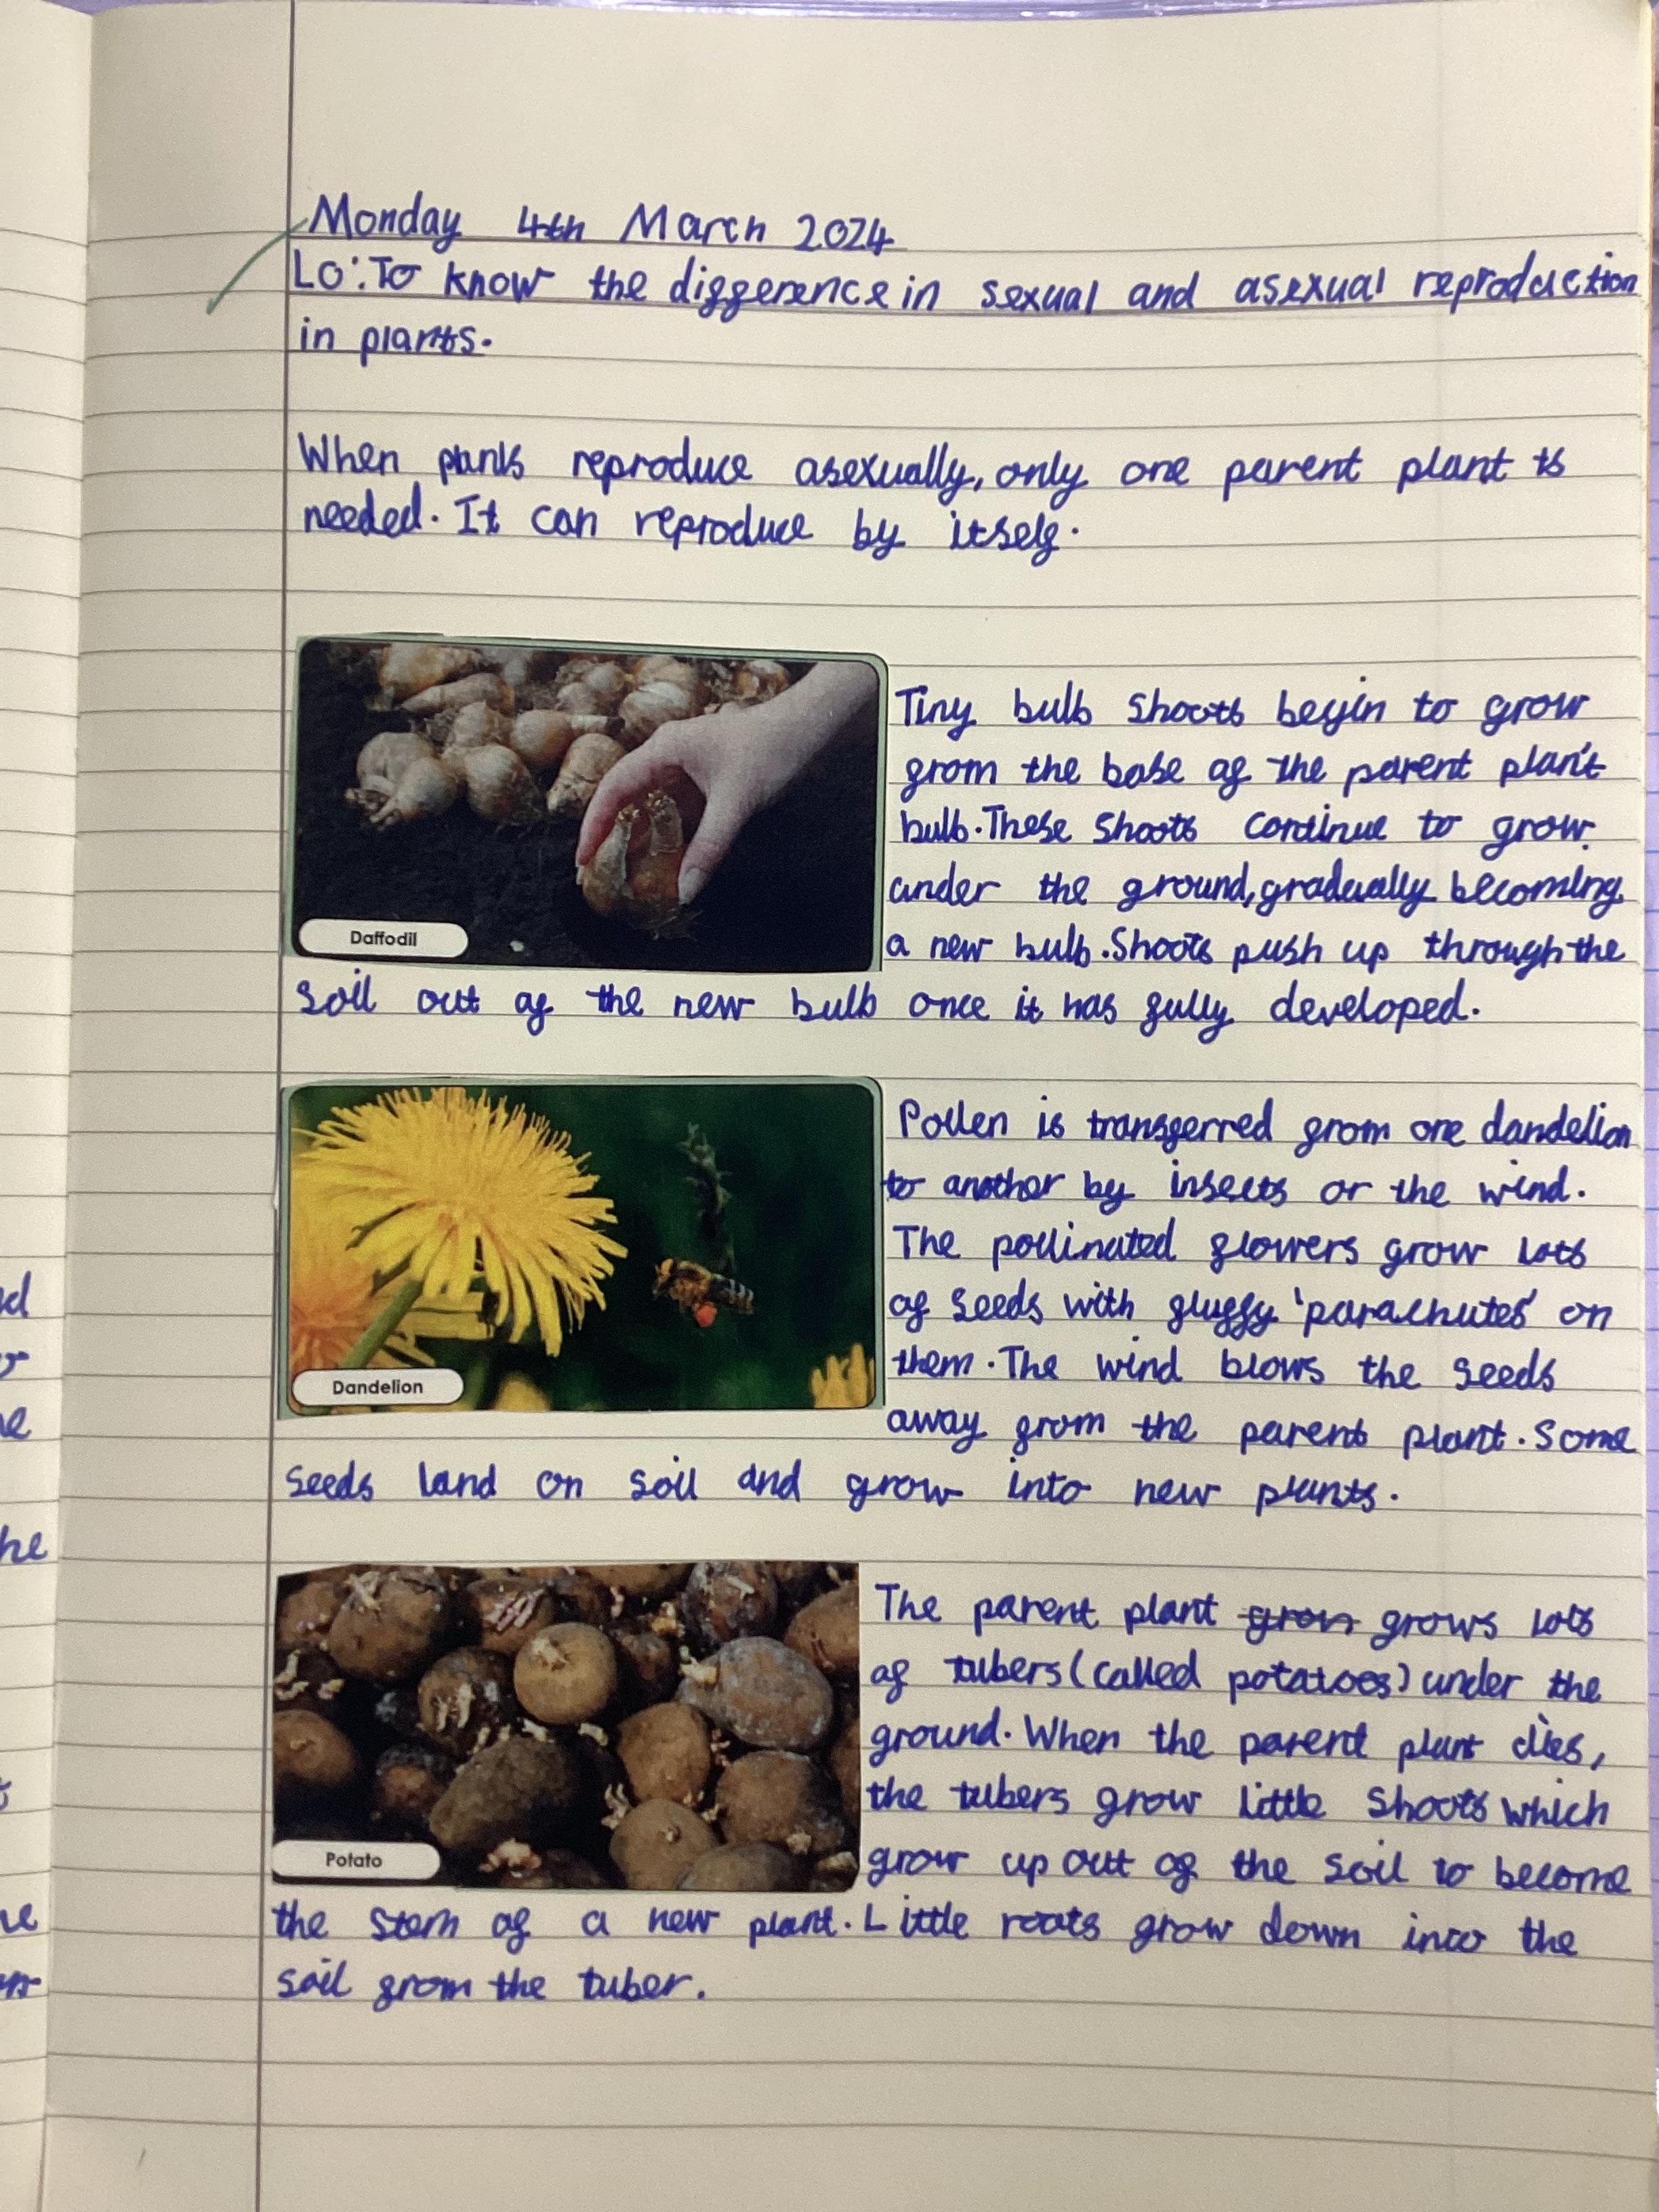 Monday 4th March 2024
LO: To know the difference in sexual and asexual reproduction
in plants.
When plants reproduce asexually, only one parent plant is
needed. It can reproduce by itself.
Tiny bulb shoots begin to grow
from the base of the parent plant's
bulb. These shoots continue to grow
under the ground, gradually becoming
a new bulb. Shoots push up through the
soil out of the new bulb once it has fully developed.
Daffodil
Pollen is transferred from one dandelion
to another by insects or the wind.
The pollinated flowers grow lots
of seeds with fluffy 'parachutes' on
them. The wind blows the seeds
away from the parent plant. Some
seeds land on soil and grow into new plants.
Dandelion
The parent plant grows lots
of tubers (called potatoes) under the
ground. When the parent plant dies,
the tubers grow little shoots which
grow up out of the soil to become
the stem of a new plant. Little roots grow down into the
soil from the tuber.
Potato